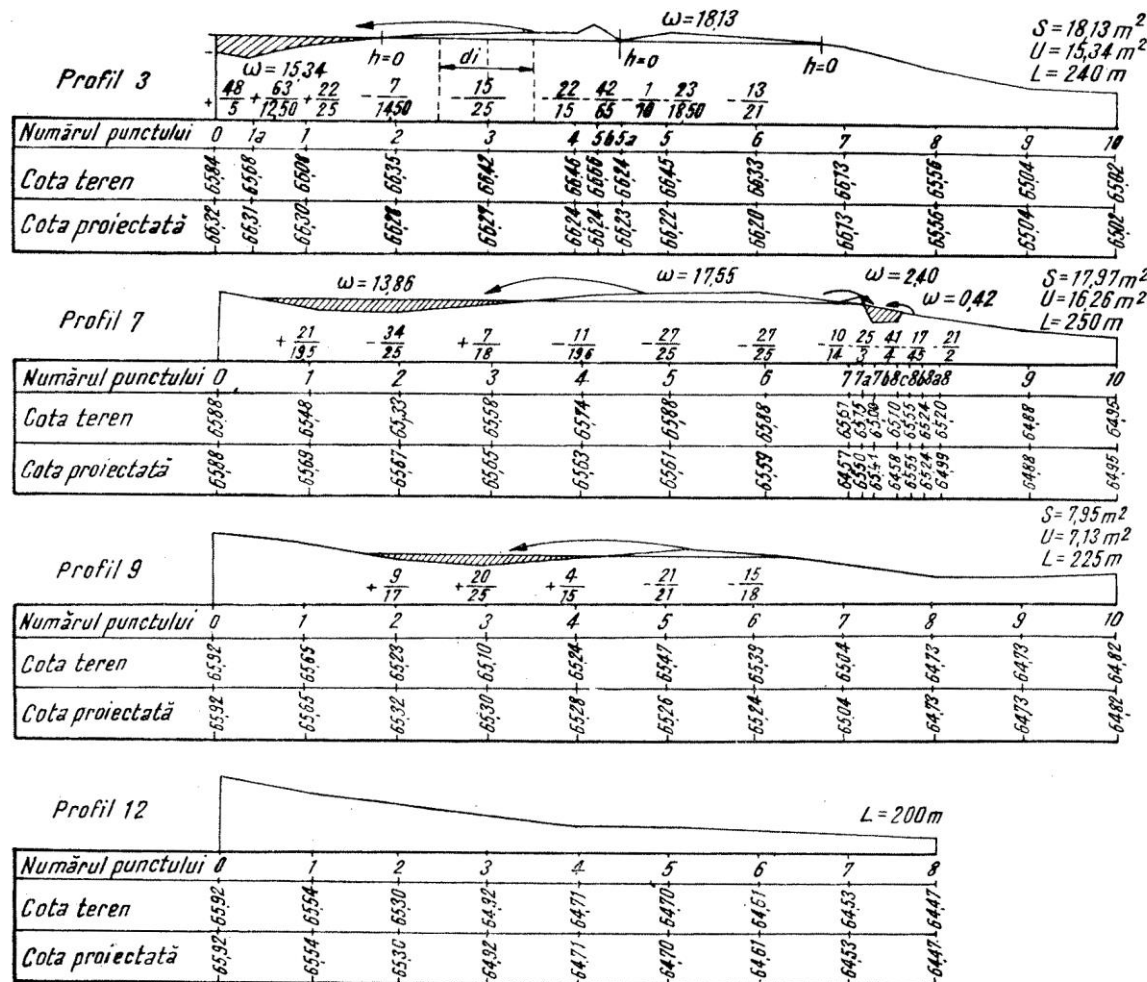 ω=18,13
S=18,13 m²
U=15,34 m²
L=240 m
Profil 3
ω=15,34
h=0
di
h=0
h=0
+ 48/5 + 63/12,50 + 22/25 - 7/14,50 - 15/25 - 22/15 - 42/65 - 1/10 - 23/18,50 - 13/21
Numărul punctului 0 1a 1 2 3 4 5b 5a 5 6 7 8 9 10
Cota teren 65,84 65,68 66,35 66,42 66,46 66,66 66,24 66,45 66,33 66,73 65,56 65,04 65,02
Cota proiectată 66,32 66,31 66,30 66,28 66,27 66,24 66,24 66,23 66,22 66,20 66,73 65,56 65,04 65,02
ω=13,86
ω=17,55
ω=2,40
ω=0,42
S=17,97 m²
U=16,26 m²
L=250 m
Profil 7
+ 21/19,5 - 34/25 + 7/18 - 11/19,6 - 27/25 - 27/25 - 10/14 - 25/3 - 41/4 - 17/45 - 21/2
Numărul punctului 0 1 2 3 4 5 6 7 7a 7b 8c 8b 8a 8 9 10
Cota teren 65,88 65,48 65,33 65,58 65,74 65,88 65,88 65,67 65,75 65,00 65,70 65,55 65,24 65,20 64,88 64,95
Cota proiectată 65,88 65,69 65,67 65,65 65,63 65,61 65,59 64,57 65,50 65,41 64,58 65,24 64,99 64,88 64,95
S=7,95 m²
U=7,13 m²
L=225 m
Profil 9
+ 9/17 + 20/25 + 4/15 - 21/21 - 15/18
Numărul punctului 0 1 2 3 4 5 6 7 8 9 10
Cota teren 65,92 65,65 65,23 65,10 65,24 65,47 65,39 65,04 64,73 64,73 64,82
Cota proiectată 65,92 65,65 65,32 65,30 65,28 65,26 65,24 65,04 64,73 64,73 64,82
Profil 12
L=200 m
Numărul punctului 0 1 2 3 4 5 6 7 8
Cota teren 65,92 65,54 65,30 64,92 64,71 64,70 64,61 64,53 64,47
Cota proiectată 65,92 65,54 65,30 64,92 64,71 64,70 64,61 64,53 64,47